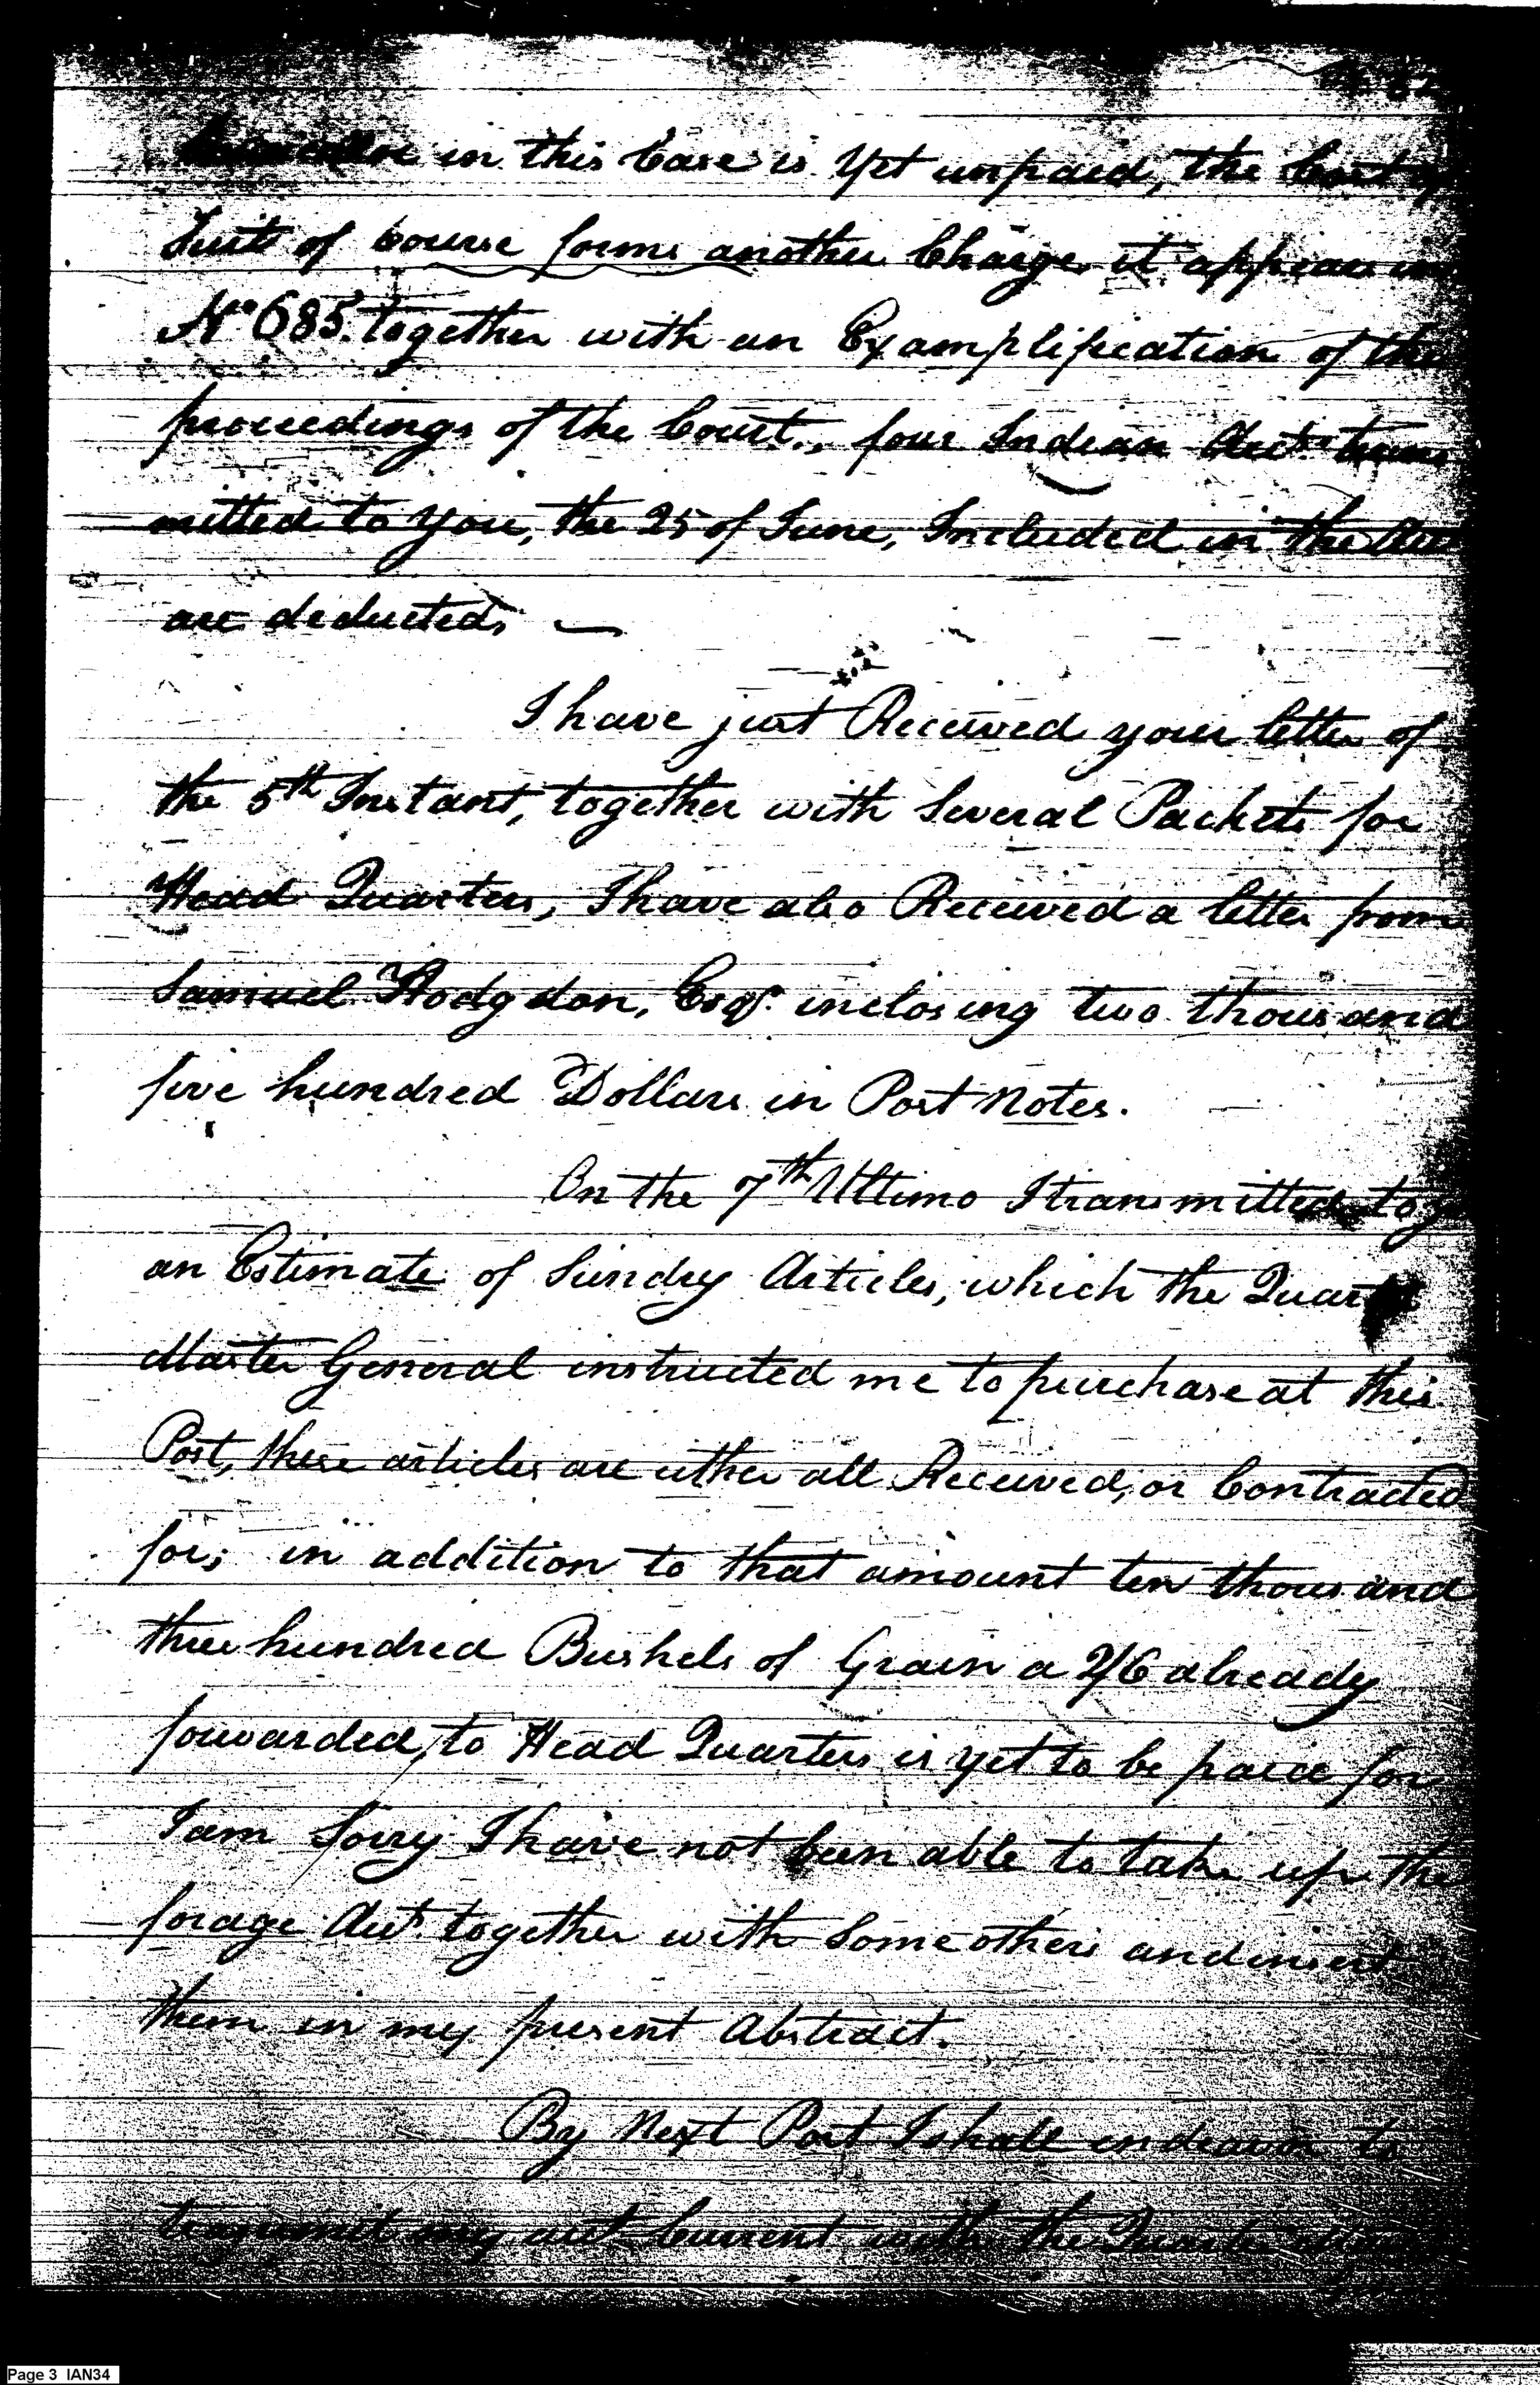 in this Case is Yet unpaid, the Cost of
Suit of Course forms another Charge, it appears in
No 685. together with an Examplification of the
proceedings of the Court., four Indian Acct.s trans
mitted to you, the 25 of June, Included in the
are deducted,
I have just Received your letter of
the 5th Instant, together with Several Packets for
Head Quarters, I have also Received a letter from
Samuel Hodgdon, Esqr. inclosing two thousand
five hundred Dollars in Post Notes.
On the 7th Ultimo I transmitted to
an Estimate of Sundry Articles, which the Quarter
Master General instructed me to purchase at this
Post, these articles are either all Received, or Contracted
for; in addition to that amount ten thousand
three hundred Bushels of Grain a 2/6 already
forwarded, to Head Quarters is yet to be paid for
I am Sorry I have not been able to take up the
forage Acct. together with Some others and insert
them in my present Abstract.
By Next Post I shall endeavor to
transmit my acct Current with the Quarter
Page 3 IAN34